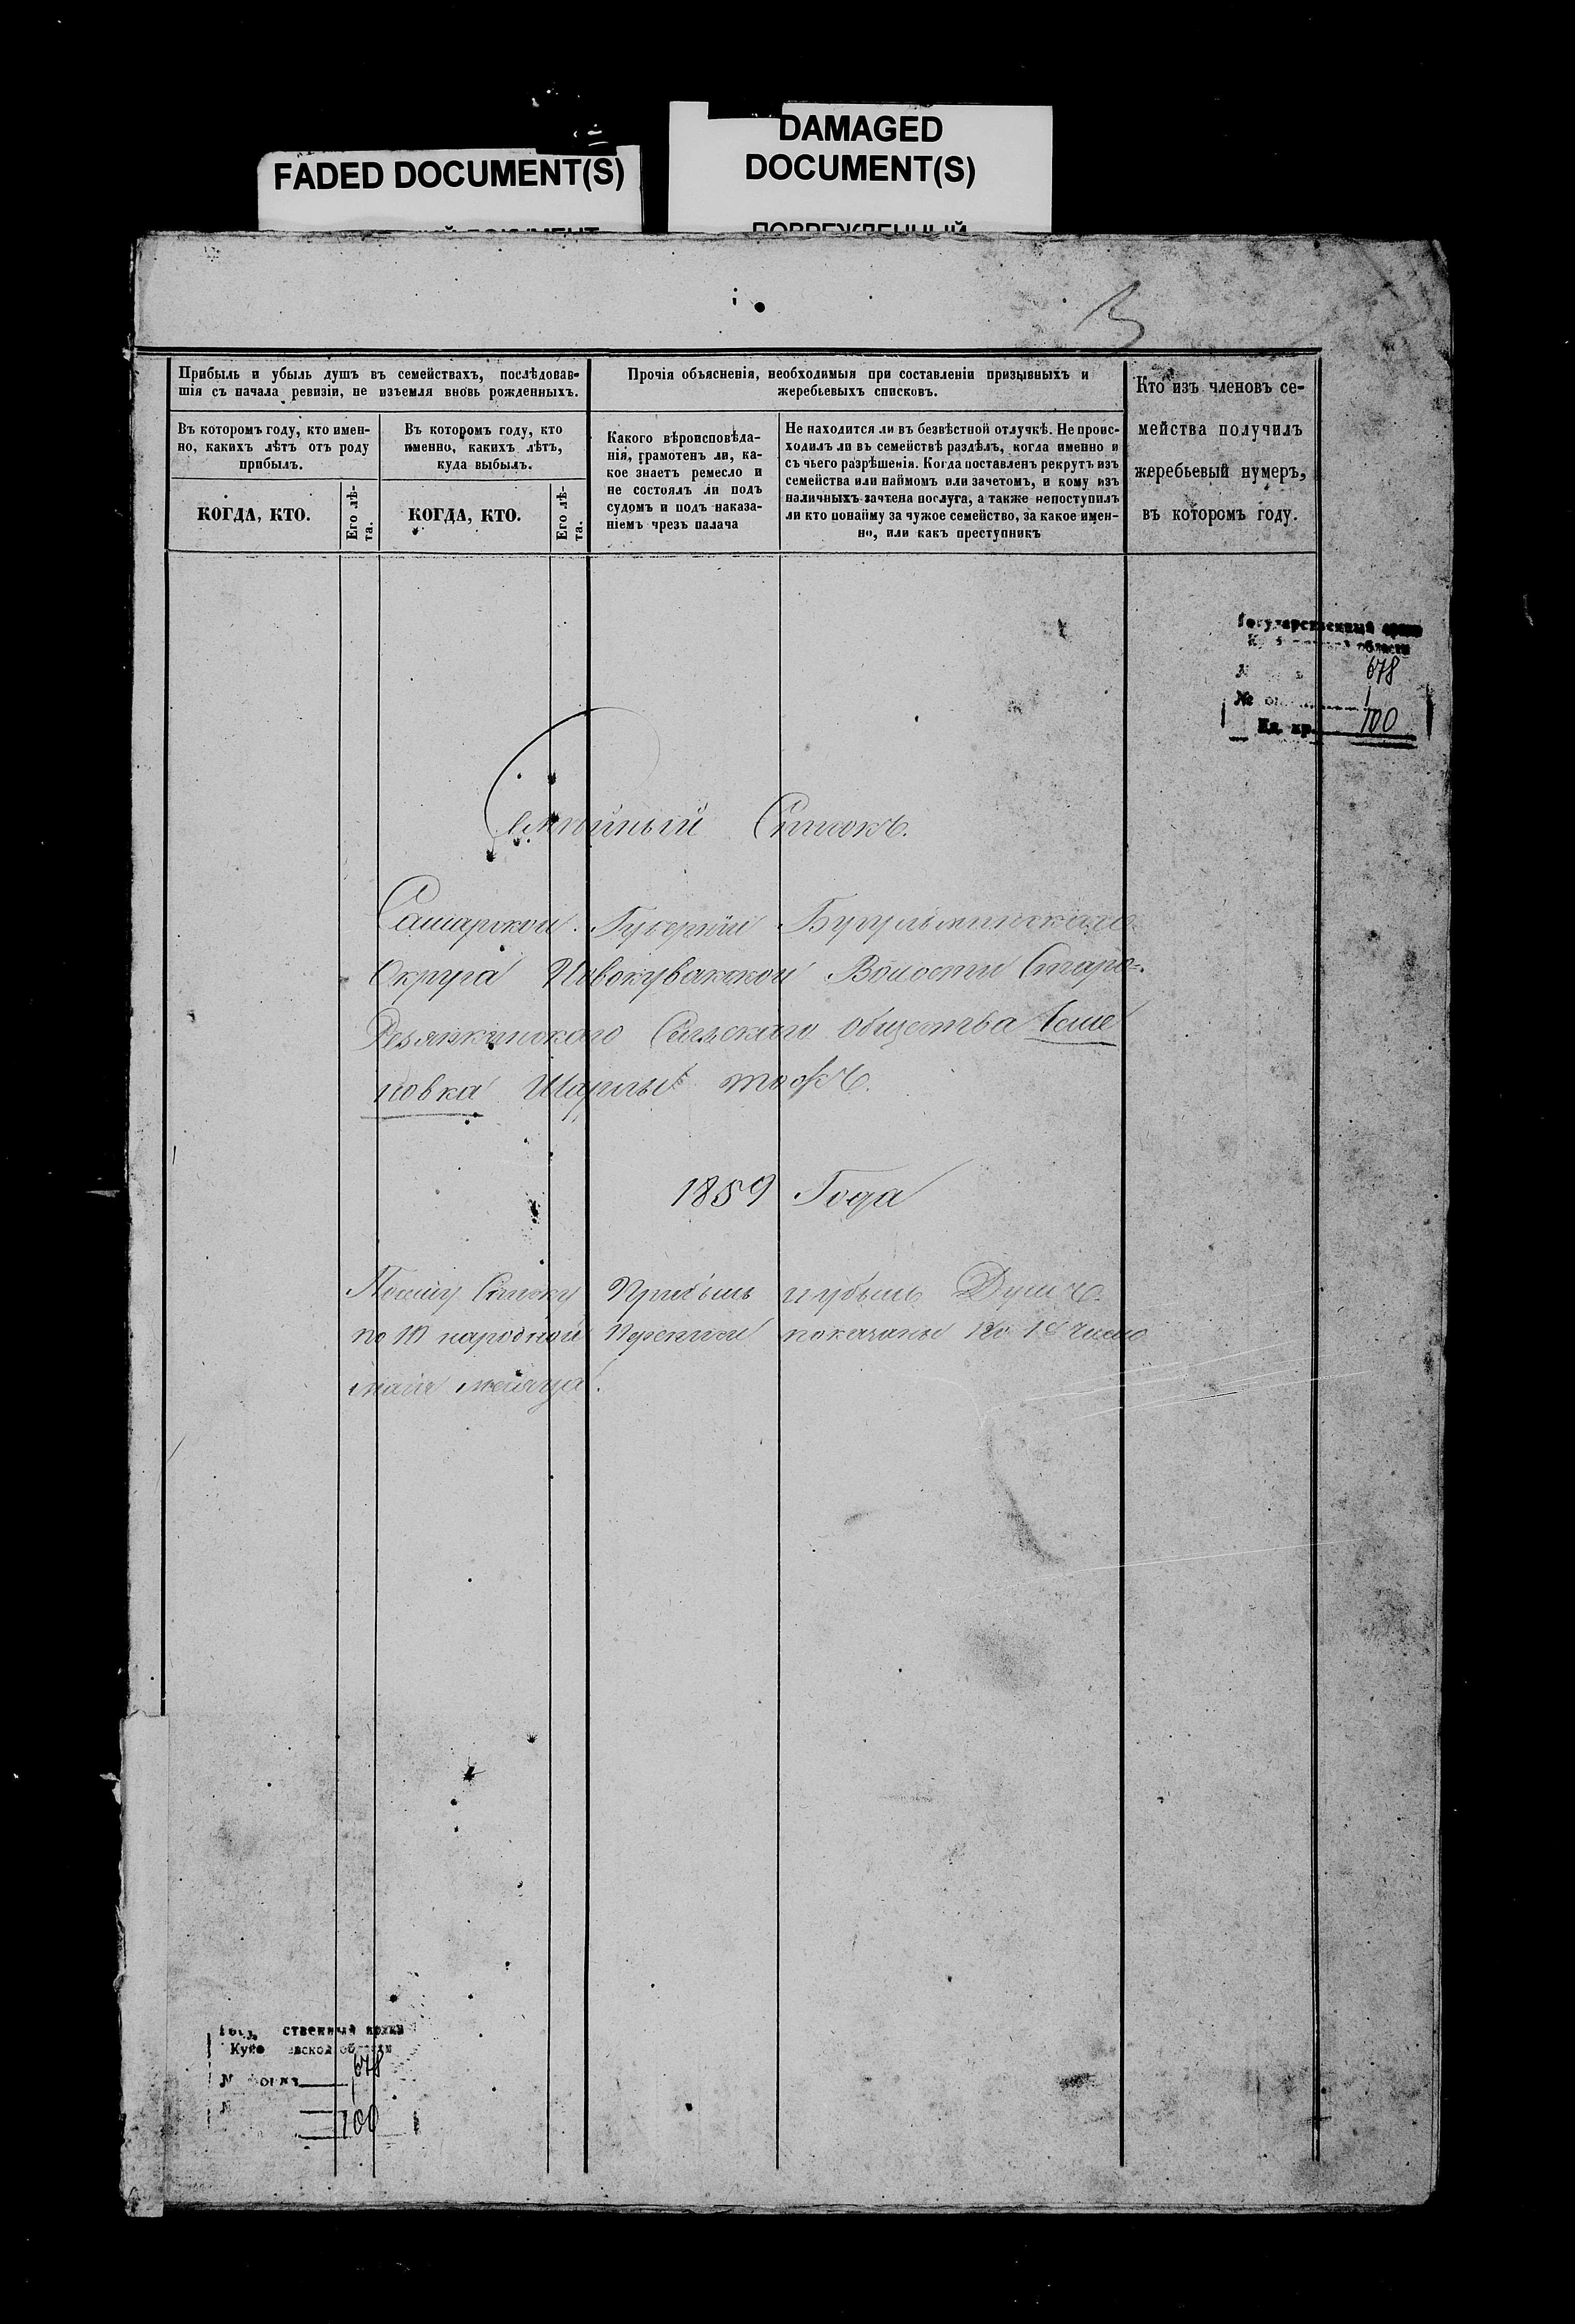 FADED DOCUMENT(S)
DAMAGED
DOCUMENT(S)
ПОВРЕЖДЕННЫЙ
Прибыль и убыль душъ въ семействахъ, послѣдовав-
шія съ начала ревизіи, не изъемля вновь рожденныхъ.
Въ которомъ году, кто имен-
но, какихъ лѣтъ отъ роду
прибылъ.
Въ которомъ году, кто
именно, какихъ лѣтъ,
куда выбылъ.
КОГДА, КТО.
Его лѣ-
та.
КОГДА, КТО.
Его лѣ-
та.
Прочія объясненія, необходимыя при составленіи призывныхъ и
жеребьевыхъ списковъ.
Какого вѣроисповѣда-
нія, грамотенъ ли, ка-
кое знаетъ ремесло и
не состоялъ ли подъ
судомъ и подъ наказа-
ніемъ чрезъ палача
Не находится ли въ безвѣстной отлучкѣ. Не проис-
ходилъ ли въ семействѣ раздѣлъ, когда именно и
съ чьего разрѣшенія. Когда поставленъ рекрутъ изъ
семейства или наймомъ или зачетомъ, и кому изъ
наличныхъ зачтена послуга, а также непоступилъ
ли кто понайму за чужое семейство, за какое имен-
но, или какъ преступникъ
Кто изъ членовъ се-
мейства получилъ
жеребьевый нумеръ,
въ которомъ году.
Государственный архив
области
678
№ 1
Ед. хр. 100
Семейный Списокъ.
Самарской Губерніи Бугульминскаго
Округа Новокувакской Волости Старо-
Резяпкинскаго Сельскаго общества Семе
новка Шарлы тожъ.
1859 Года
Посему Списку Прибыль и убыль Душъ
по 10 народной Переписи показаны по 1е число
мая месяца.
678
1
100